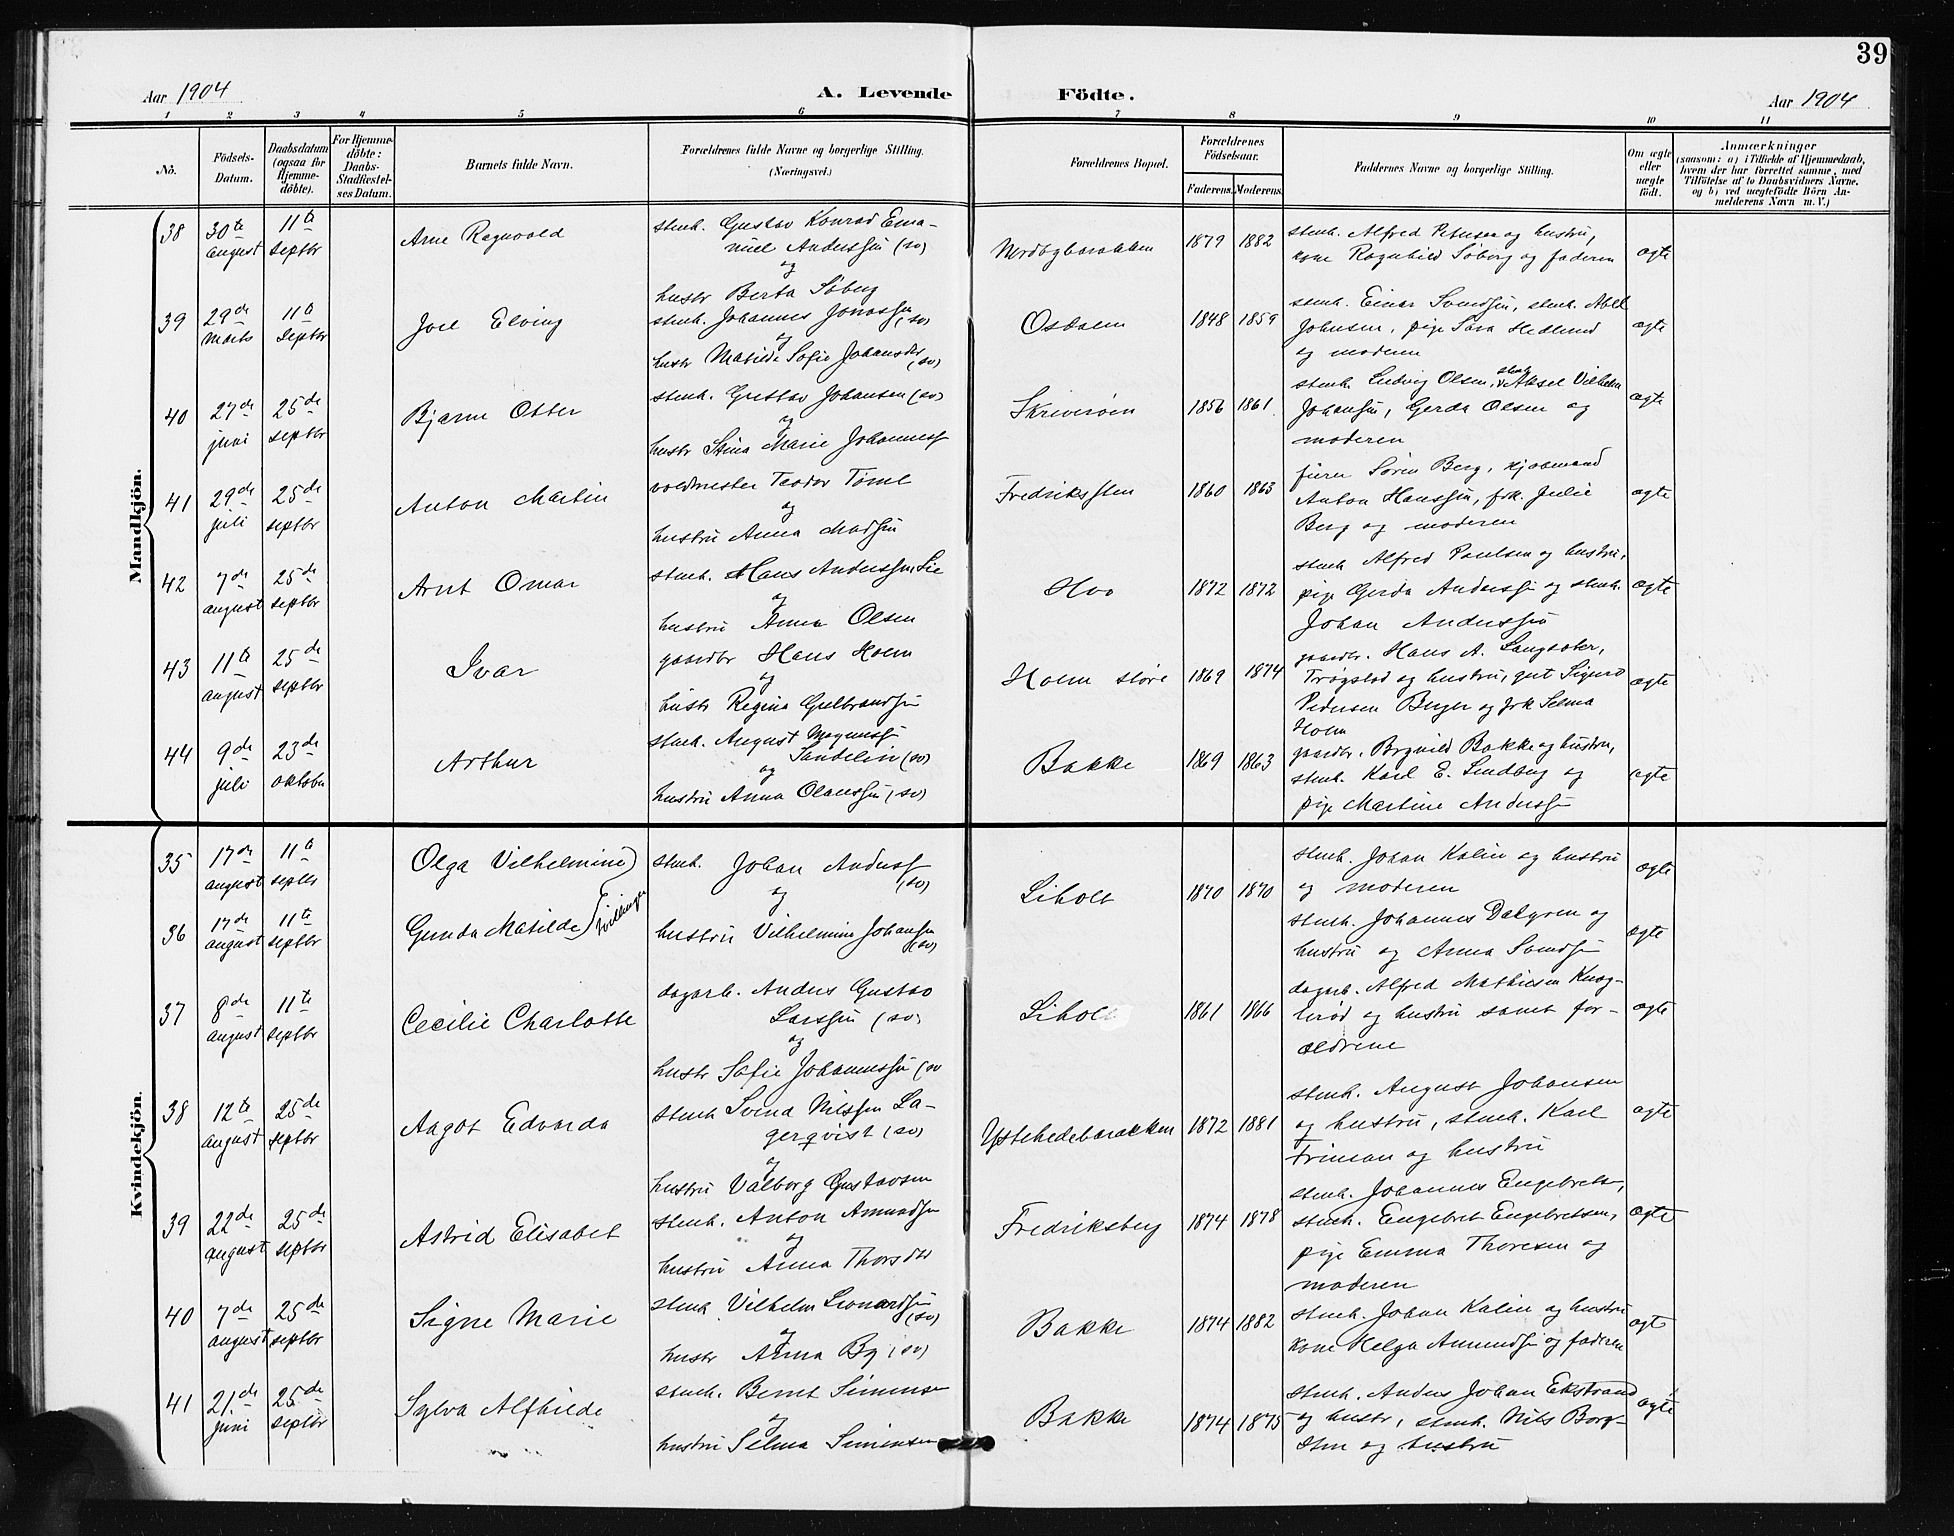 39
Aar 1904
A. Levende Födte.
Aar 1904
1 2 3 4 5 6 7 8 9 10 11
No.
Födsels-Datum.
Daabsdatum (ogsaa for Hjemme-döbte).
For Hjemme-döbte: Daabs-Stadfæstel-ses Datum.
Barnets fulde Navn.
Forældrenes fulde Navne og borgerlige Stilling.
(Næringsvei.)
Forældrenes Bopæl.
Forældrenes Födselsaar.
Faderens. Moderens.
Faddernes Navne og borgerlige Stilling.
Om ægte eller uægte födt.
Anmærkninger
(saasom: a) i Tilfælde af Hjemmedaab,
hvem der har forrettet samme, med
Tilföielse af to Daabsvidners Navne,
og b) ved uægtefödte Börn An-
melderens Navn m. V.)
Mandkjön.
38 30te august 11te septbr Arne Ragnvald
stenh. Gustav Konrad Ema-
nuel Anderssen (sv)
og
hustr Berta Søberg
Nordbybarakken 1879 1882
stenh. Alfred Petersen og hustru,
kone Ragnhild Søberg og faderen
ægte
39 29de Marts 11te Septbr Joel Elving
stenh. Johannes Jonassen (sv)
og
hustr Matilde Sofie Johansdtr (sv)
Osdalen 1848 1859
stenh. Einar Svendsen, stenh. Abel
Johnsen, pige Sara Hedlund
og moderen
ægte
40 27de juni 25de septbr Bjarne Otter
stenh. Gustav Johansen (sv)
og
hustr Stina Marie Johanness
Skriverøen 1856 1861
stenh. Ludvig Olsen, stenh. Aksel Vilhelm
Johansen, Gerda Olsen og
moderen
ægte
41 29de juli 25de septbr Anton Martin
voldmester Teodor Tømt
og
hustru Anna Madsen
Fredriksten 1860 1863
furer Søren Berg, kjøbmand
Anton Hanssen, frk. Julie
Berg og moderen
ægte
42 7de august 25de septbr Arnt Omar
stenh. Hans Anderssen Lie
og
hustru Anna Olsen
Hov 1872 1872
stenh Alfred Paulsen og hustru,
pige Gerda Anderssen og stenh.
Johan Anderssen
ægte
43 11te august 25de septbr Ivar
gaardbr Hans Holm
og
hustr Regina Gulbrandsen
Holm store 1869 1874
gaardbr. Hans A. Langsæter,
Trøgstad og hustru, gut Sigurd
Pedersen Berger og frk Selma
Holm
ægte
44 9de juli 23de oktober Arthur
stenh. August Magnussen
Sandelin (sv)
og
hustru Anna Olaussen (sv)
Bakke 1869 1863
gaardbr. Brynild Bakke og hustru,
stenh. Karl E. Lindberg og
pige Martine Anderssen
ægte
Kvindekjön.
35 17de august 11te septbr Olga Vilhelmine
stenh. Johan Anderss (sv)
og
Liholt 1870 1870
stenh. Johan Kalin og hustru
og moderen
ægte
36 17de august 11te septbr Gunda Matilde
Tvillinger
hustru Vilhelmine Johansen (sv)
stenh. Johannes Dalgren og
hustru og Anna Svendsen
ægte
37 8de august 11te septbr Cecilie Charlotte
dagarb. Anders Gustav
Larssen (sv)
og
hustr Sofie Johannessen (sv
Liholt 1861 1866
dagarb. Alfred Mathiesen Knag-
lerød og hustru samt for-
ældrene
ægte
38 12te august 25de septbr Aagot Edvarda
stenh Svend Nilssen La-
gerqvist (sv)
og
hustru Valborg Gustavsen
Ystehedebarakken 1872 1881
stenh. August Johansen
og hustru, stenh. Karl
Friman og hustru
ægte
39 22de august 25de septbr Astrid Elisabet
stenh. Anton Amundsen
og
hustru Anna Thorsdtr
Fredriksberg 1874 1878
stenh. Johannes Engebrets,
stenh. Engebret Engebretsen,
pige Emma Thoresen og
moderen
ægte
40 7de august 25de septbr Signe Marie
stenh Vilhelm Leonardsen (sv)
og
hustr Anna By (sv)
Bakke 1874 1882
stenh. Johan Kalin og hustru
kone Helga Amundsen og faderen
ægte
41 21de juni 25de septbr Sylva Alfhilde
stenh. Bernt Simensen
og
hustru Selma Simensen
Bakke 1874 1875
stenh. Anders Johan Ekstrand
og hustr, stenh. Nils Borg-
sten og hustru
ægte